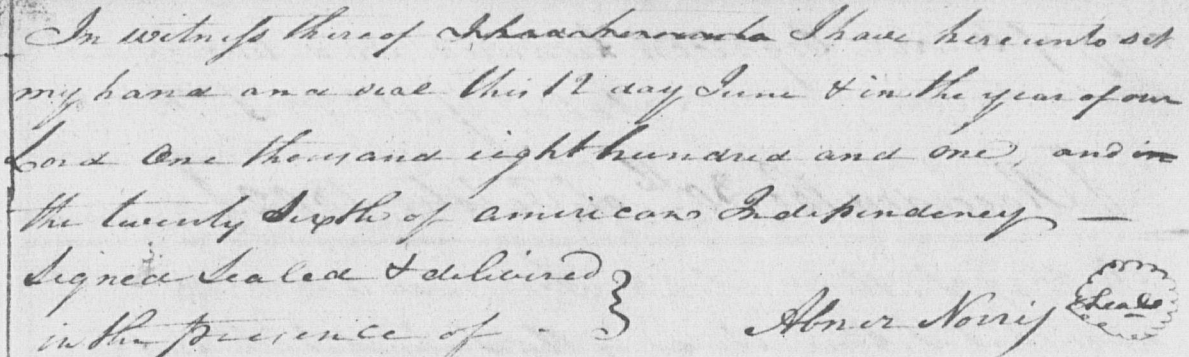 In witness thereof I have hereunto set
my hand and seal this 12 day June & in the year of our
Lord One thousand eight hundred and one, and in
the twenty Sixth of american Independency —
Signed Sealed & delivered }
in the presence of - Abner Norris Seale